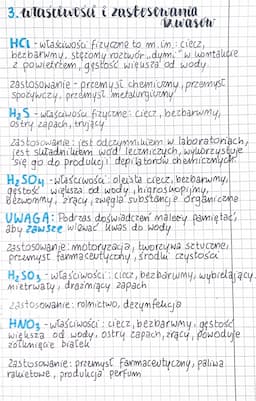 3. właściwości i zastosowania kwasów
HCl - właściwości fizyczne to m.in.: ciecz,
bezbarwny, stężony roztwór „dymi" w kontakcie
z powietrzem, gęstość większa od wody
zastosowanie - przemysł chemiczny, przemysł
spożywczy, przemysł metalurgiczny
H₂S - właściwości fizyczne: ciecz, bezbarwny,
ostry zapach, trujący
zastosowanie: jest odczynnikiem w laboratoriach,
jest składnikiem wód leczniczych, wykorzystuje
się go do produkcji depilatorów chemicznych
H₂SO₄ - właściwości: oleista ciecz, bezbarwny,
gęstość większa od wody, higroskopijny,
bezwonny, żrący, zwęgla substancje organiczne
UWAGA: Podczas doświadczeń należy pamiętać,
aby zawsze wlewać kwas do wody
zastosowanie: motoryzacja, tworzywa sztuczne,
przemysł farmaceutyczny, środki czystości
H₂SO₃ - właściwości: ciecz, bezbarwny, wybielający,
nietrwały, drażniący zapach
zastosowanie: rolnictwo, dezynfekcja
HNO₃ - właściwości: ciecz, bezbarwny, gęstość
większa od wody, ostry zapach, żrący, powoduje
żółknięcie białek
zastosowanie: przemysł farmaceutyczny, paliwa
rakietowe, produkcja perfum